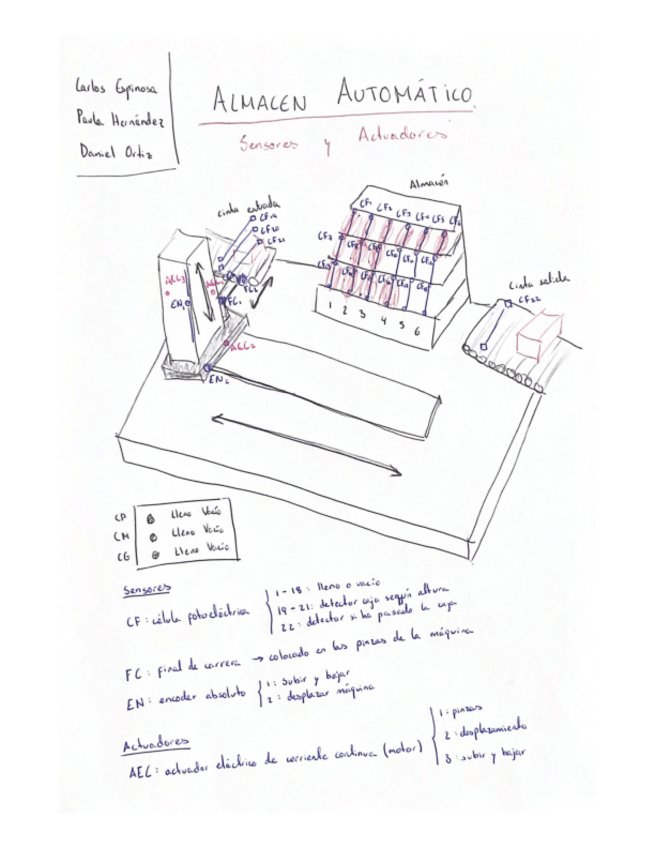 Carlos Espinosa
Paula Hernández
Daniel Ortiz
ALMACEN AUTOMÁTICO
Sensores y Actuadores
Almacén
cinta entrada
CF19
CF20
CF21
CF1 CF2 CF3 CF4 CF5 CF6
CF7
cinta salida
CF22
AEC3
EN1
FC1
AEC2
EN2
1 2 3 4 5 6
CP Lleno Vacío
CM Lleno Vacío
CG Lleno Vacío
Sensores
CF: célula fotoeléctrica
1-18: lleno o vacío
19-21: detector caja según altura
22: detector si ha pasado la caja
FC: final de carrera → colocado en las pinzas de la máquina
EN: encoder absoluto
1: subir y bajar
2: desplazar máquina
Actuadores
AEC: actuador eléctrico de corriente continua (motor)
1: pinzas
2: desplazamiento
3: subir y bajar